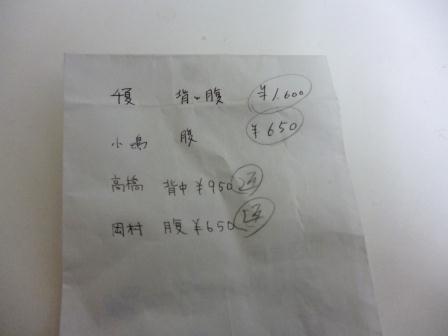 背・腹 ¥1,600
小島 腹 ¥650
高橋 背中 ¥950 済
岡村 腹 ¥650 済